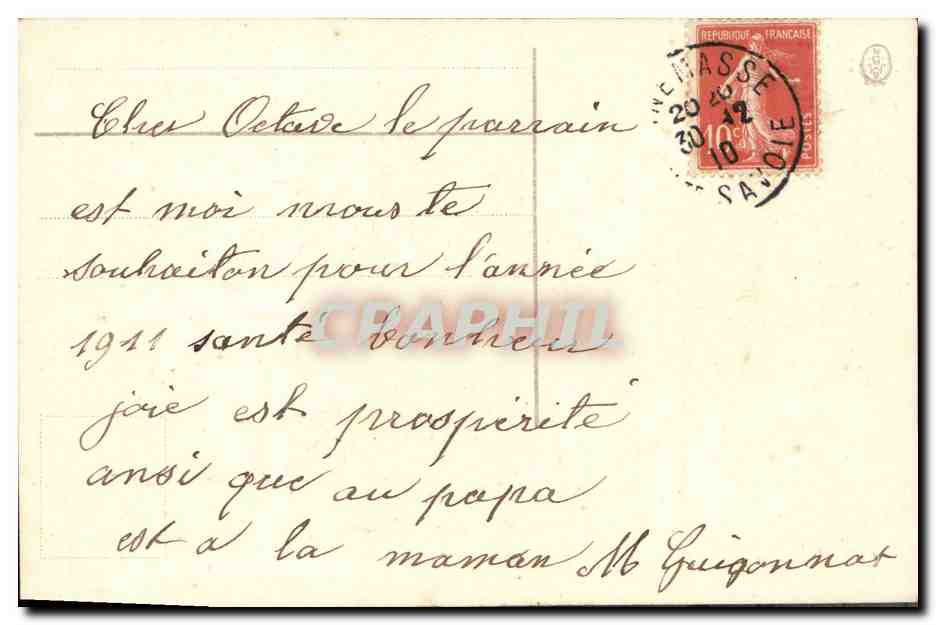 REPUBLIQUE FRANÇAISE
10 c
POSTES
NEMASSE
20 26
30 12
10
SAVOIE
Cher Octave le parrain
est moi nrous te
souhaiton pour l'année
1911 santé bonheur
joie est prospérité
ansi que au papa
est a la maman M Guigonnat
CPAPHIL